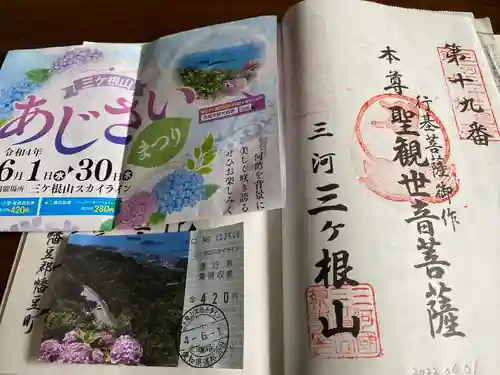 三ケ根山
あじさい
まつり
令和4年
6月1日(水)▶30日(木)
開催場所 三ケ根山スカイライン
420円
280円
三河湾を背景に
美しく咲き誇る
ぜひお楽しみく
三ケ根山スカイライン
通行券
兼領収書
金420円
4-6.-1
幡豆郡幡豆町
第十九番
行基菩薩御作
本尊 聖観世音菩薩
三河三ヶ根山
2022.06.01